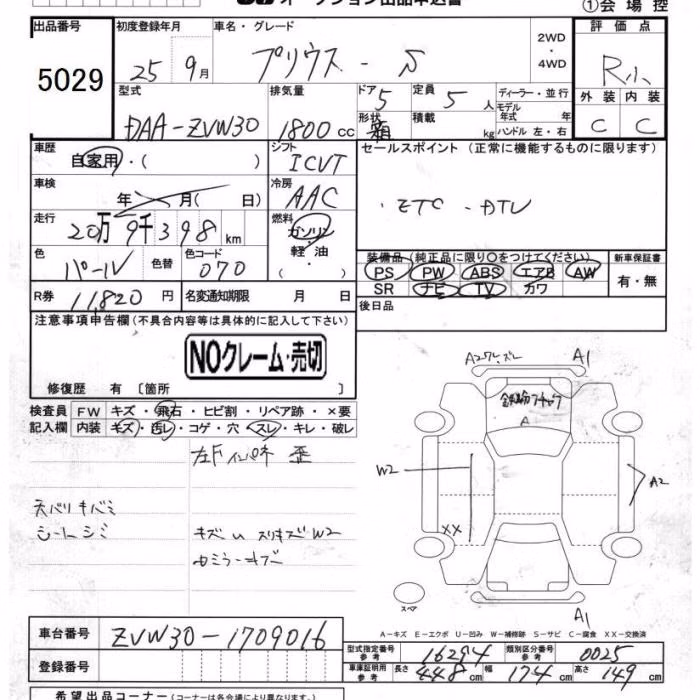 オークション出品申込書 ①会場控
出品番号 初度登録年月 車名・グレード 2WD・4WD 評価点
5029 25年 9月 プリウス - S R小
型式 排気量 ドア 定員 ディーラー・並行 外装 内装
DAA-ZVW30 1800cc 5 5人 モデル年式 年 C C
形状 箱 積載 kg ハンドル 左・右
車歴 自家用・( ) シフト ICVT セールスポイント (正常に機能するものに限ります)
車検 年 月( 日) 冷房 AAC ・ETC ・DTV
走行 20万9千398km 燃料 ガソリン・軽油・( )
色 パール 色替 色コード 070 装備品 (純正品に限り○をつけてください) 新車保証書
PS PW ABS エアB AW 有・無
SR ナビ TV カワ
R券 11,820円 名変通知期限 月 日 後日品
注意事項申告欄 (不具合内容等は具体的に記入して下さい)
NOクレーム・売切
修復歴 有 〔箇所 〕
検査員記入欄 FW キズ・飛石・ヒビ割・リペア跡・×要
内装 キズ・汚レ・コゲ・穴・スレ・キレ・破レ
歪
天バリキバミ
シートシミ
キズ
W2
A1
A
W2 A2
XX
スペア
A1
A-キズ E-エクボ U-凹み W-補修跡 S-サビ C-腐食 XX-交換済
車台番号 ZVW30-1709016 型式指定番号 参考 16294 類別区分番号 参考 0025
登録番号 車庫証明用 参考 長さ 448cm 幅 174cm 高さ 149cm
希望出品コーナー (コーナーは各会場により異なります)